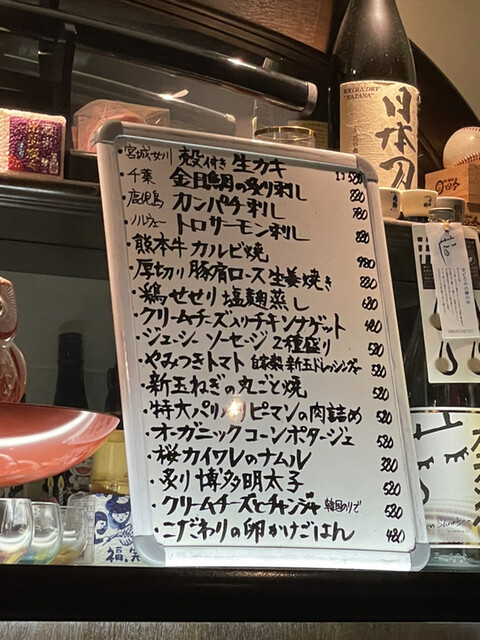 EXTRA DRY
"KATANA"
日本刀
・宮城女川 殻付き 生カキ 1コ 520
・千葉 金目鯛の炙り刺し 880
・鹿児島 カンパチ刺し 780
・ノルウェー トロサーモン刺し 880
・熊本牛カルビ焼 980
・厚切り豚肩ロース生姜焼き 880
・鶏せせり塩麹蒸し 680
・クリームチーズ入りチキンナゲット 480
・ジューシーソーセージ2種盛り 520
・やみつきトマト 自家製新玉ドレッシング 520
・新玉ねぎの丸ごと焼 520
・特大パリパリピーマンの肉詰め 520
・オーガニックコーンポタージュ 580
・桜カイワレのナムル 380
・炙り博多明太子 520
・クリームチーズとチャンジャ 韓国のりで 580
・こだわりの卵かけごはん 480
福